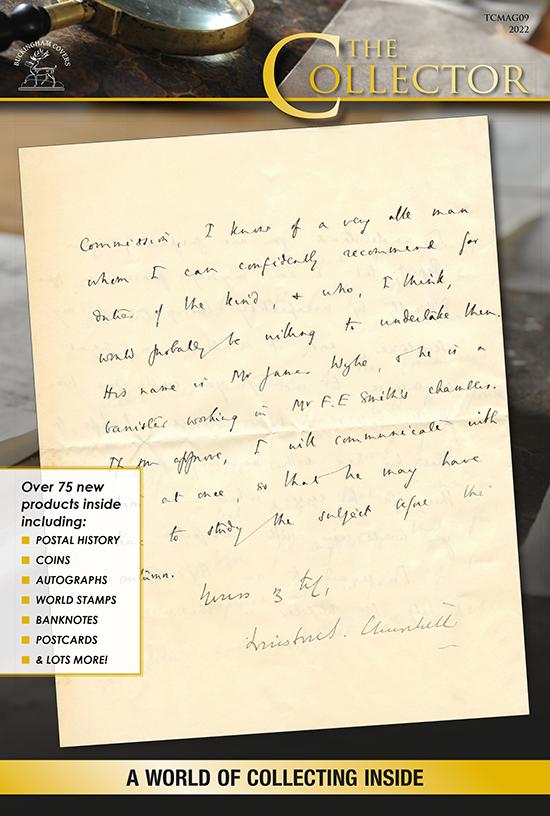 TCMAG09
2022
BUCKINGHAM COVERS
THE
COLLECTOR
Commission, I know of a very able man
whom I can confidently recommend for
duties of the kind, & who, I think,
would probably be willing to undertake them.
His name is Mr James Wylie, & he is a
barrister working in Mr F.E Smith's chambers.
If you approve, I will communicate with
at once, so that he may have
to study the subject before the
autumn.
Yours
Winston S. Churchill
Over 75 new
products inside
including:
POSTAL HISTORY
COINS
AUTOGRAPHS
WORLD STAMPS
BANKNOTES
POSTCARDS
& LOTS MORE!
A WORLD OF COLLECTING INSIDE